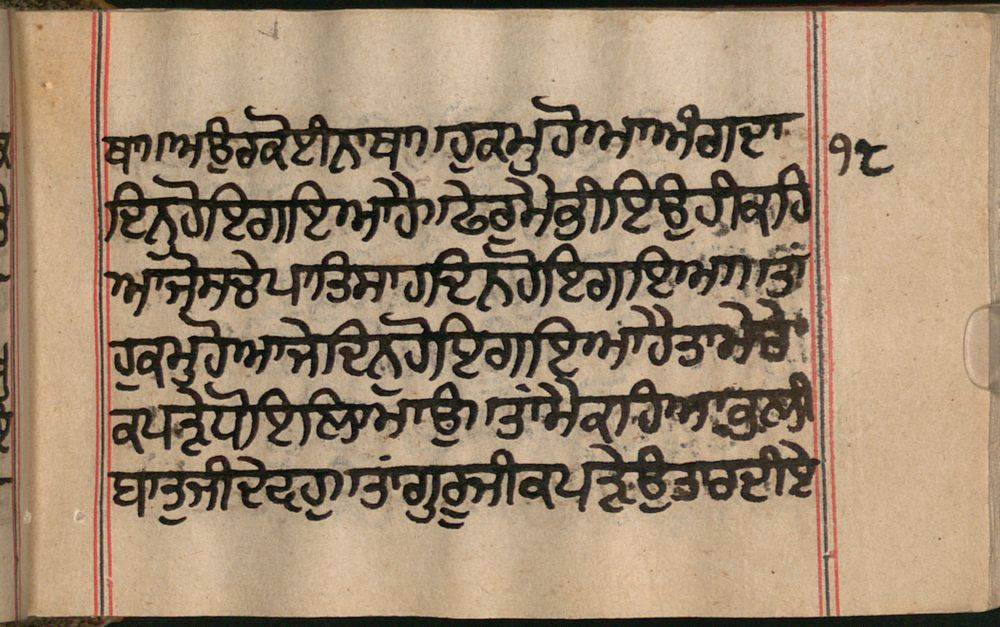 ਥਾ।ਅਉਰਕੋਈਨਾਥਾ।ਹੁਕਮੁਹੋਆਅੰਗਦਾ ੧੮
ਦਿਨੁਹੋਇਗਇਆਹੈ।ਫੇਰੁਮੈਭੀਇਉਹੀਕਹਿ
ਆਜੋਸਚੇਪਾਤਿਸਾਹਦਿਨੁਹੋਇਗਇਆ।ਤਾਂ
ਹੁਕਮੁਹੋਆਜੇਦਿਨੁਹੋਇਗਇਆਹੈਤਾਮੇਰੇ
ਕਪੜੇਧੋਇਲਿਆਉ।ਤਾਂਮੈਕਹਿਆਭਲੀ
ਬਾਤੁਜੀਦੇਵਹੁ।ਤਾਂਗੁਰੂਜੀਕਪੜੇਉਤਰਦੀਏ